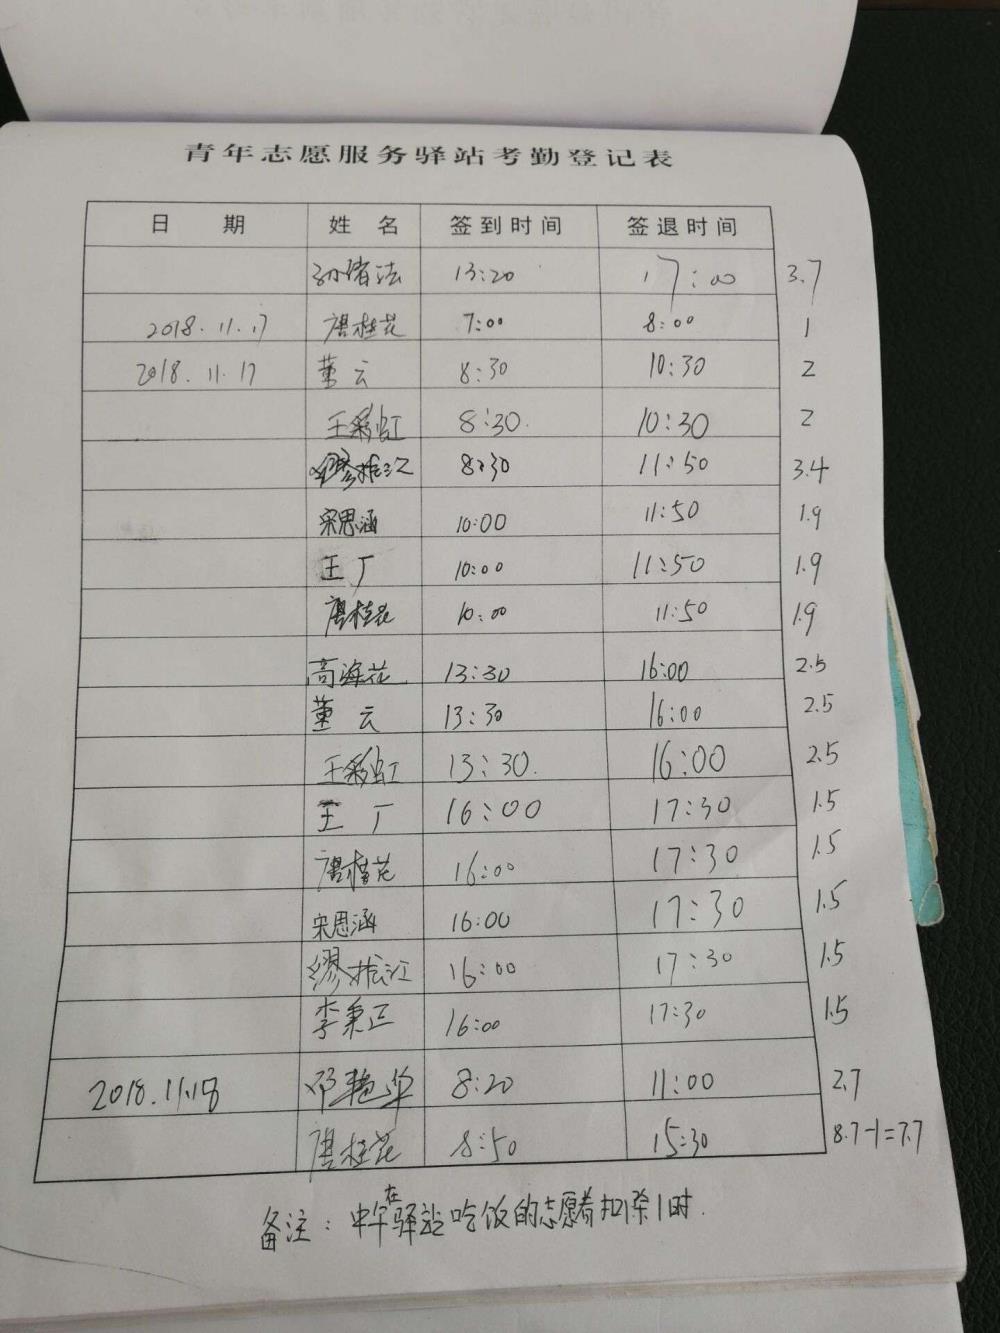 青年志愿服务驿站考勤登记表
日 期 姓 名 签到时间 签退时间
孙绪法 13:20 17:00 3.7
2018.11.17 唐桂花 7:00 8:00 1
2018.11.17 董云 8:30 10:30 2
王彩虹 8:30 10:30 2
缪拾江 8:30 11:50 3.4
宋思涵 10:00 11:50 1.9
王丁 10:00 11:50 1.9
唐桂花 10:00 11:50 1.9
高海花 13:30 16:00 2.5
董云 13:30 16:00 2.5
王彩虹 13:30 16:00 2.5
王丁 16:00 17:30 1.5
唐桂花 16:00 17:30 1.5
宋思涵 16:00 17:30 1.5
缪拾江 16:00 17:30 1.5
李秉正 16:00 17:30 1.5
2018.11.18 邓艳华 8:20 11:00 2.7
唐桂花 8:50 15:30 8.7-1=7.7
备注：中午在驿站吃饭的志愿者扣除1时.